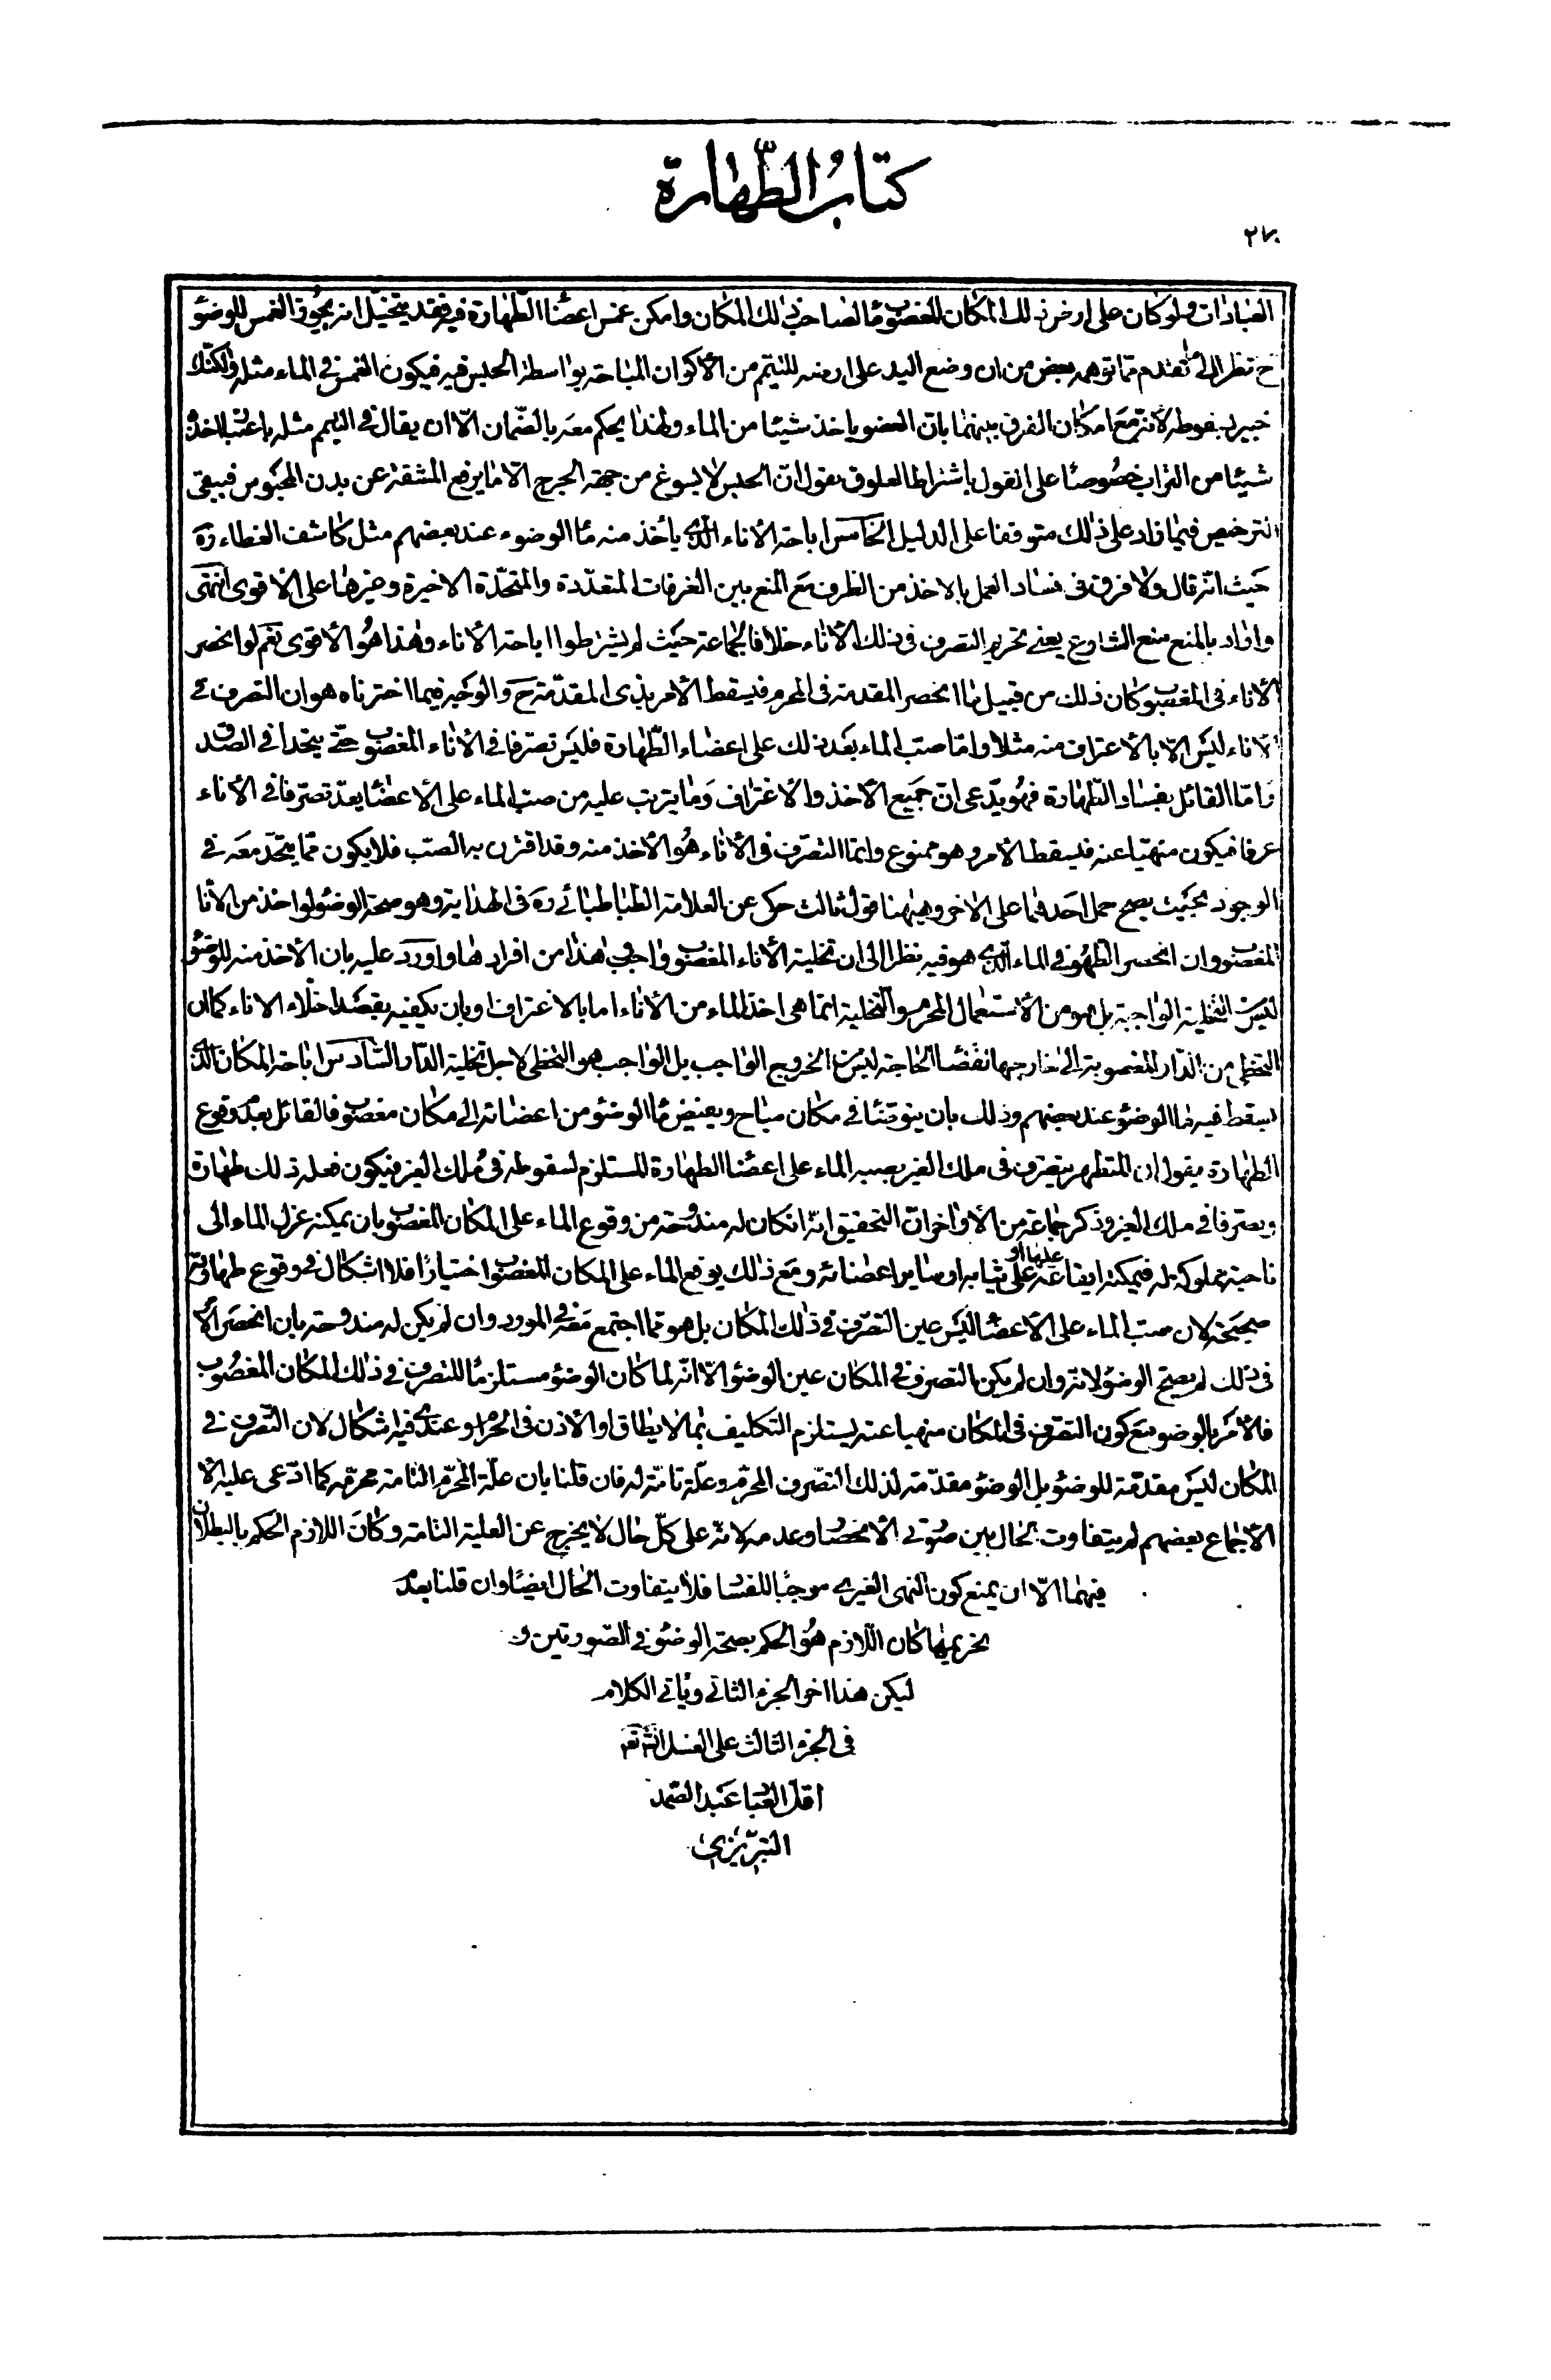 كتاب الطّهارة
٢٧٠
العبادات ولو كان على ارض ذلك المكان المغصوب ماء لصاحب ذلك المكان وامكن غمس اعضاء الطّهارة فيه فقد يتخيّل انه يجوز الغمس للوضوء
ح نظرا الى ما تقدم مما توهمه بعض من ان وضع اليد على ارضه للتيمم من الأكوان المباحة بواسطة الحبس فيه فيكون الغمس في الماء مثله ولكنّك
خبير بسقوطه لأنه مع امكان الفرق بينهما بان العضو ياخذ شيئا من الماء ولهذا يحكم معه بالضّمان الّا ان يقال في التيمم مثله باعتبار اخذه
شيئا من التراب خصوصا على القول باشتراط العلوق نقول انّ الحبس لا يسوغ من جهة الحرج الّا ما يرفع المشقة عن بدن المحبوس فيبقى
الترخيص فيما زاد على ذلك متوقفا على الدليل الخامس اباحة الأناء الّذي يأخذ منه ماء الوضوء عند بعضهم مثل كاشف الغطاء ره
حيث انّه قال ولا فرق في فساد العمل بالاخذ من الظرف مع المنع بين الغرفات المتعدّدة والمتحدّة الاخيرة وغيرها على الأقوى انتهى
واراد بالمنع منع الشارع يعني تحريم التصرف في ذلك الأناء خلافا لجماعة حيث لم يشترطوا اباحة الأناء وهذا هو الأقوى نعم لو انحصر
الأناء في المغصوب كان ذلك من قبيل ما انحصر المقدمة في المحرم فيسقط الأمر بذى المقدّمة ح والوجه فيما اخترناه هو ان التصرف في
الأناء ليس الّا بالأغتراف منه مثلا وامّا صب الماء بعد ذلك على اعضاء الطّهارة فليس تصرّفا في الأناء المغصوب حتّى يتحدا في الصدق
وامّا القائل بفساد الطّهارة فهو يدّعى انّ جميع الأخذ والأغتراف وما يترتب عليه من صب الماء على الأعضاء يعدّ تصرّفا في الأناء
عرفا فيكون منهيّا عنه فيسقط الأمر وهو ممنوع وانما التصرّف في الأناء هو الأخذ منه وقد اقترن به الصّب فلا يكون ممّا يتحّد معه في
الوجود بحيث يصح حمل احدهما على الأخر وهيهنا قول ثالث حكى عن العلامة الطباطبائي ره في الهداية وهو صحة الوضوء لو اخذ من الأناء
المغصوب وان انحصر الطهور في الماء الّذي هو فيه نظرا الى ان تخلية الأناء المغصوب واجب هذا من افرادها واورد عليه بان الأخذ منه للوضوء
ليس التخلية الواجبة بل هو من الأستعمال المحرم والتخلية انما هى اخذ الماء من الأناء اما بالاغتراف او بان يكفيه بقصد اخلاء الاناء كما ان
التخطى من الدّار المغصوبة الى خارجها لقضاء الحاجة ليس من الخروج الواجب بل الواجب هو التخطى لاجل تخلية الدّار السّادس اباحة المكان الّذي
يسقط فيه ماء الوضوء عند بعضهم وذلك بان يتوضّأ في مكان مباح ويفيض ماء الوضوء من اعضائه الى مكان مغصوب فالقائل بعدم وقوع
الطهارة يقول ان المتطهر يتصرف في ملك الغير بصبه الماء على اعضاء الطهارة المستلزم لسقوطه في ملك الغير فيكون فعله ذلك طهارة
وتصرفا في ملك الغير وذكر جماعة من الأواخر ان التحقيق انّه ان كان له مندوحة من وقوع الماء على المكان المغصوب بان يمكنه عزل الماء الى
ناحية مملوكة له فيمكنه ايقاعه عليها او على ثيابه او ساير اعضائه ومع ذلك يوقع الماء على المكان المغصوب اختيارا فلا اشكال في وقوع طهارته
صحيحة لان صب الماء على الأعضاء ليس عين التصّرف في ذلك المكان بل هو مما اجتمع معه في المورد وان لم يكن له مندوحة بان انحصر الأمر
في ذلك لم يصحّ الوضوء لانه وان لم يكن التصرف في المكان عين الوضوء الّا انّه لما كان الوضوء مستلزما للتصرف في ذلك المكان المغصوب
فالأمر بالوضوء مع كون التصرّف في المكان منهيا عنه يستلزم التكليف بما لا يطاق او الأذن في الحرام وعندى فيه اشكال لان التّصرف في
المكان ليس مقدمة للوضوء بل الوضوء مقدّمة لذلك التصّرف المحرم وعلّة تامّة له فان قلنا بان علّة المحرّم التامة محرمة كما ادّعى عليه الأ
الأجماع بعضهم لم يتفاوت الحال بين صورتي الأنحصار وعدمه لانّه على كلّ حال لا يخرج عن العلية التامة وكان اللازم الحكم بالبطلان
فيهما الّا ان يمنع كون النهى الغيرى موجبا للفساد فلا يتفاوت الحال ايضا وان قلنا بعدم
تحريمها كان اللّازم هو الحكم بصحة الوضوء في الصّورتين و
ليكن هذا اخر الجزء الثاني ويأتي الكلام
في الجزء الثالث على الغسل انش تعم
اقلّ العباد عبد الصّمد
التبريزي